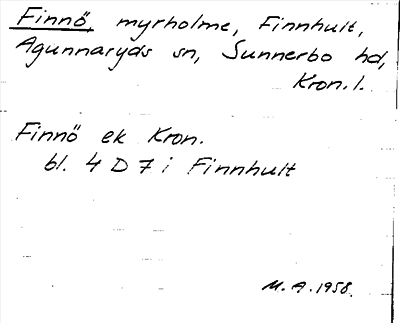 Finnö, myrholme, Finnhult,
Agunnaryds sn, Sunnerbo hd,
Kron. l.
Finnö ek Kron.
bl. 4 D 7 i Finnhult
M. A. 1958.